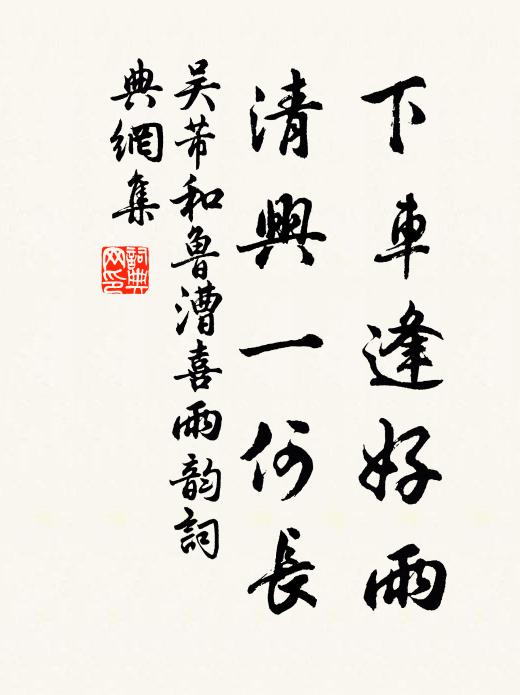 下車逢好雨
清興一何長
吴芾和魯漕喜雨韵詞
典網集
詞典
网印